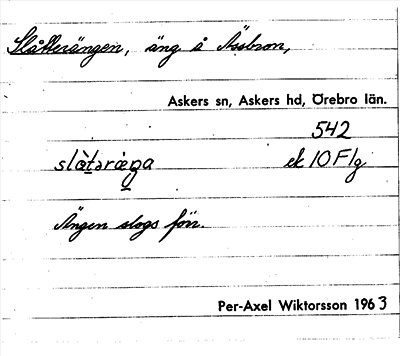 Slåtterängen, äng å Åsbron,
Askers sn, Askers hd, Örebro län.
542
slå̀t̲əräŋ̲a ek 10 F1g
Ängen slogs förr.
Per-Axel Wiktorsson 1963